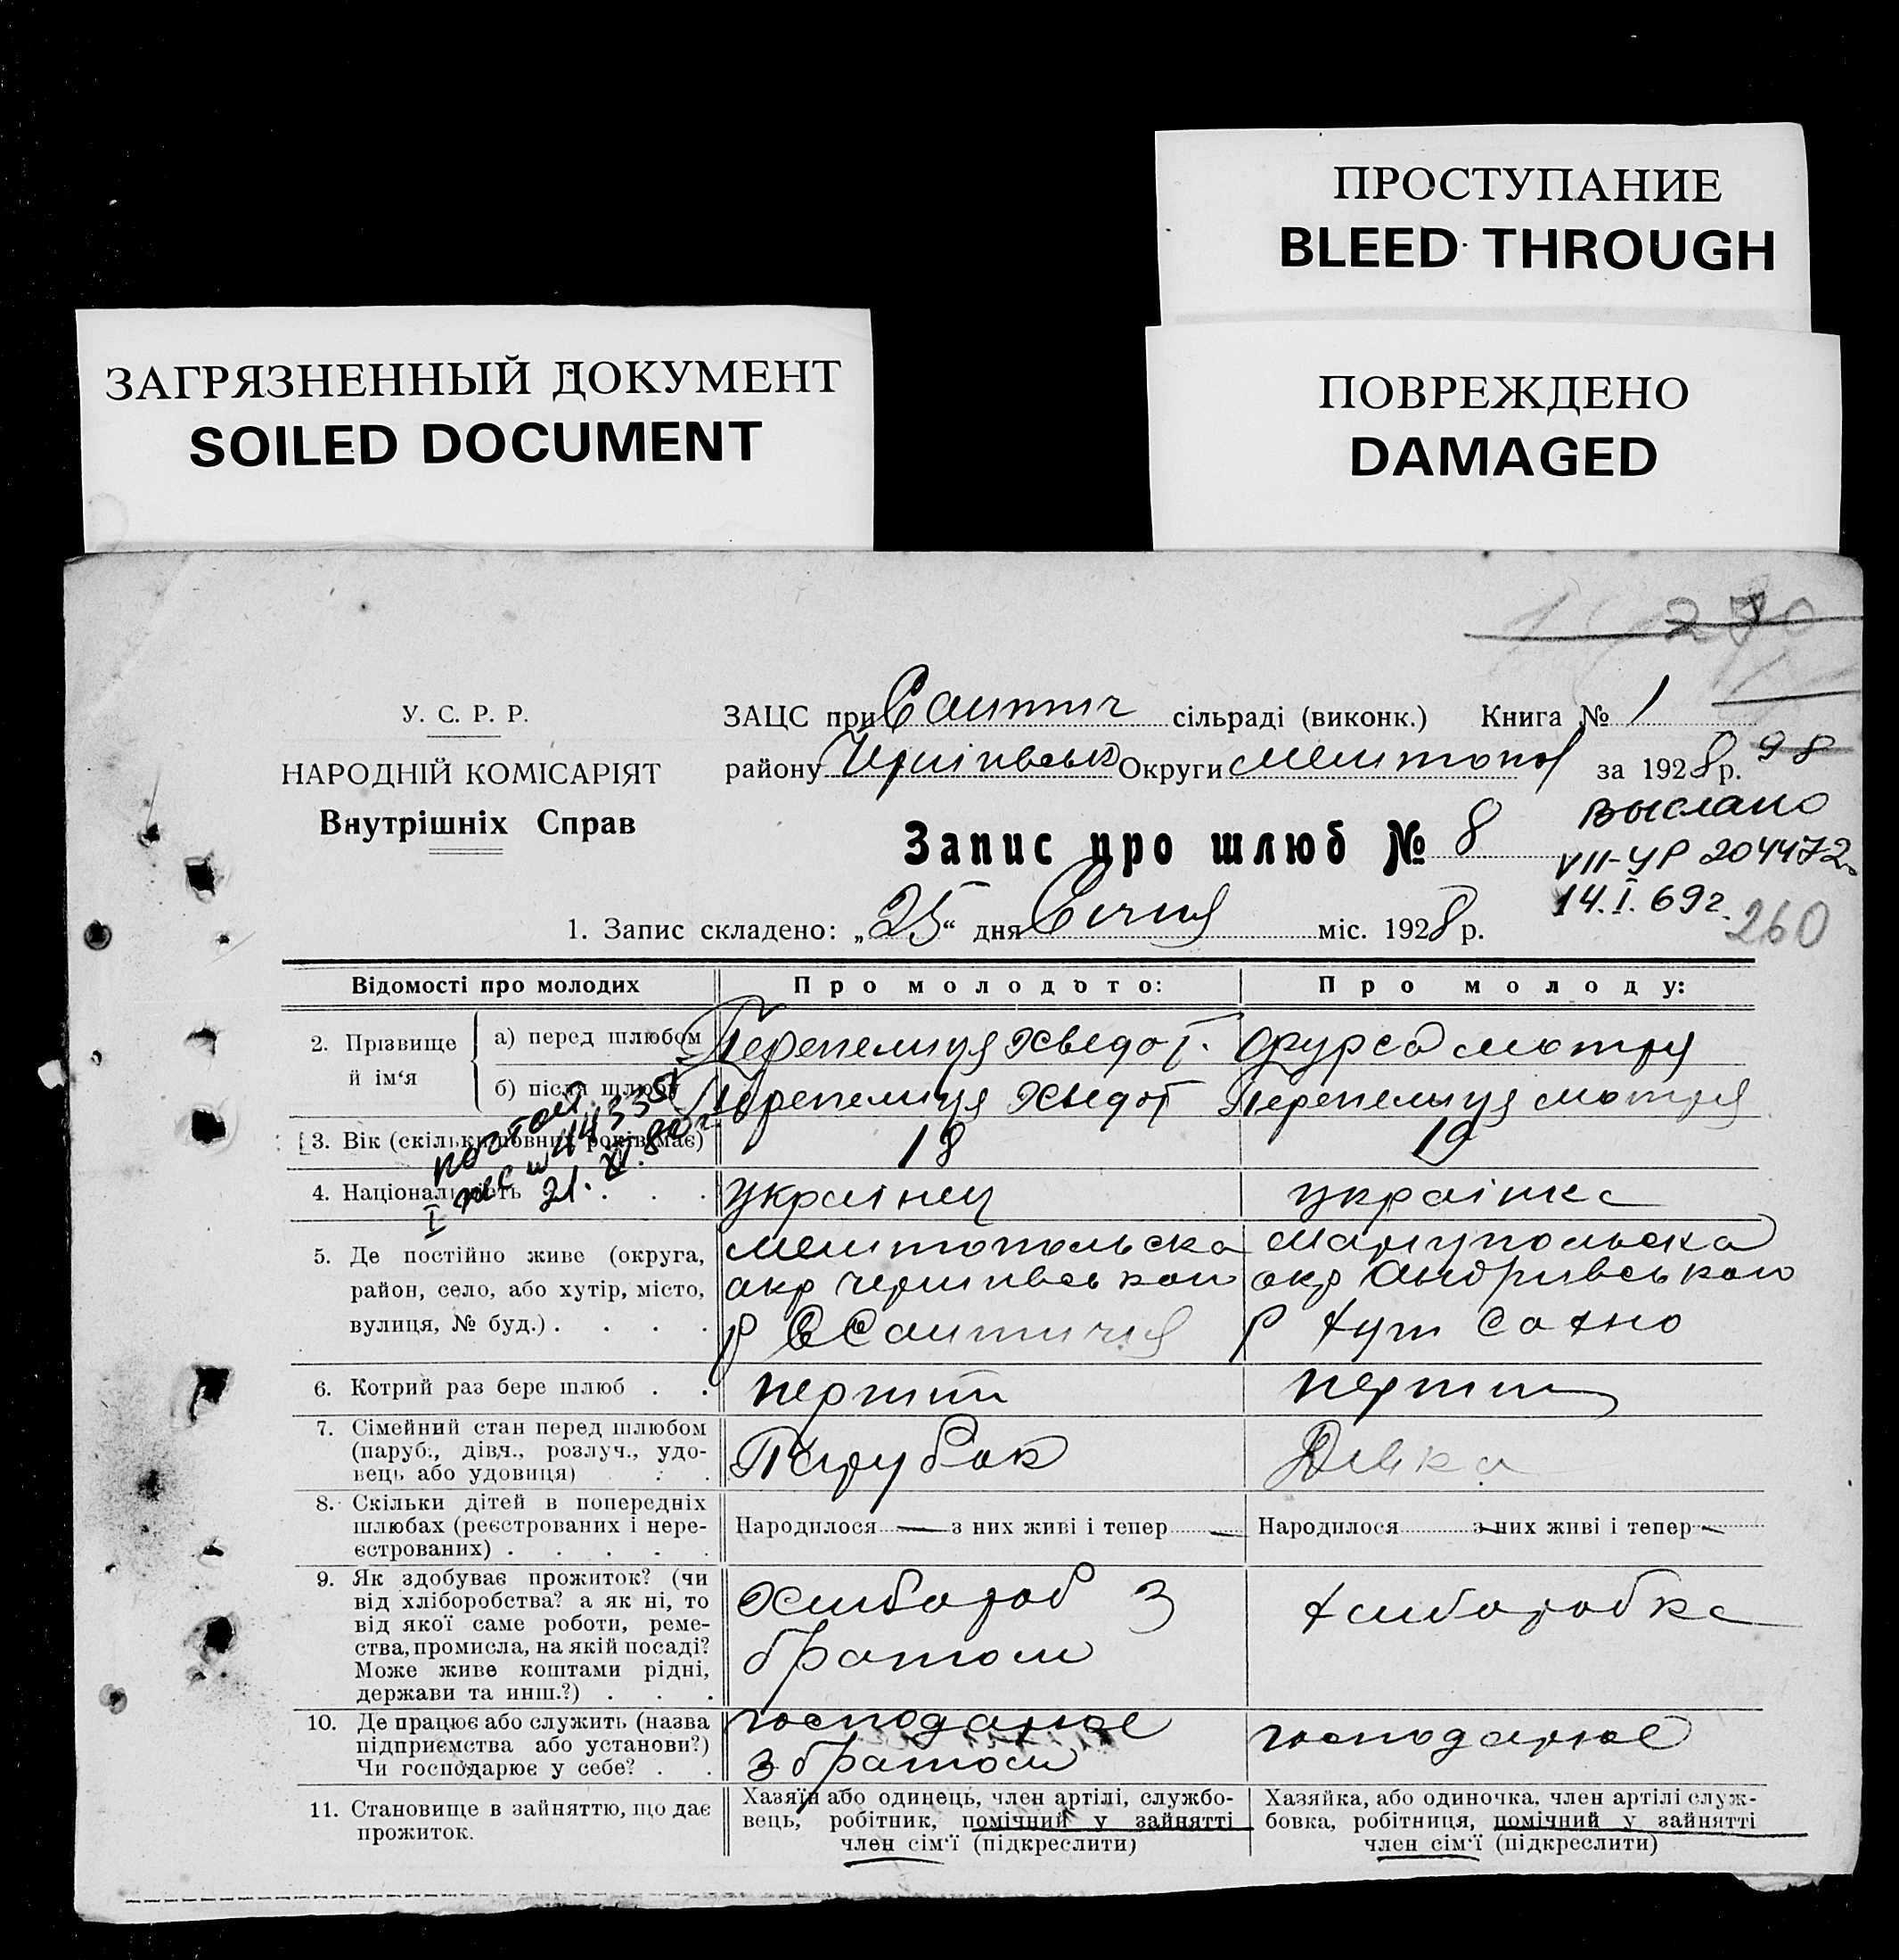 ПРОСТУПАНИЕ
BLEED THROUGH
ЗАГРЯЗНЕННЫЙ ДОКУМЕНТ
SOILED DOCUMENT
ПОВРЕЖДЕНО
DAMAGED
У. С. Р. Р.
НАРОДНІЙ КОМІСАРІЯТ
Внутрішніх Справ
ЗАЦС при сільраді (виконк.) Книга № 1
району Чернігівськ Округи Мелитопол за 1928 р. 98
Запис про шлюб № 8
Выслано
VII-УР 204472
14.I.69г.
260
1. Запис складено: „25“ дня Січня міс. 1928 р.
Відомості про молодих
Про молодого:
Про молоду:
2. Прізвище й ім‘я
а) перед шлюбом
Перепелиця Хведот
Фурса Мотря
б) після шлюбу
Перепелиця Хведот
Перепелиця Мотря
3. Вік (скільки повних років має)
18
19
4. Національність . . .
українец
українка
21.XI.80г.
5. Де постійно живе (округа,
район, село, або хутір, місто,
вулиця, № буд.) . . . .
Мелитопольска
окр Чернигвськои
р
Мариупольска
окр Андривського
р хут
6. Котрий раз бере шлюб . .
перший
перший
7. Сімейний стан перед шлюбом
(паруб., дівч., розлуч., удо-
вець або удовиця) . .
Парубок
Дивка
8. Скільки дітей в попередніх
шлюбах (реєстрованих і нере-
єстрованих) . . . . .
Народилося — з них живі і тепер —
Народилося з них живі і тепер —
9. Як здобуває прожиток? (чи
від хліборобства? а як ні, то
від якої саме роботи, реме-
ства, промисла, на якій посаді?
Може живе коштами рідні,
держави та инш.?) . . .
Хлибороб з
братом
хлиборобка
10. Де працює або служить (назва
підприємства або установи?)
Чи господарює у себе? . .
господарює
з братом
господарює
11. Становище в зайняттю, що дає
прожиток.
Хазяїн або одинець, член артілі, службо-
вець, робітник, помічний у зайнятті
член сім‘ї (підкреслити)
Хазяйка, або одиночка, член артілі служ-
бовка, робітниця, помічний у зайнятті
член сім‘ї (підкреслити)